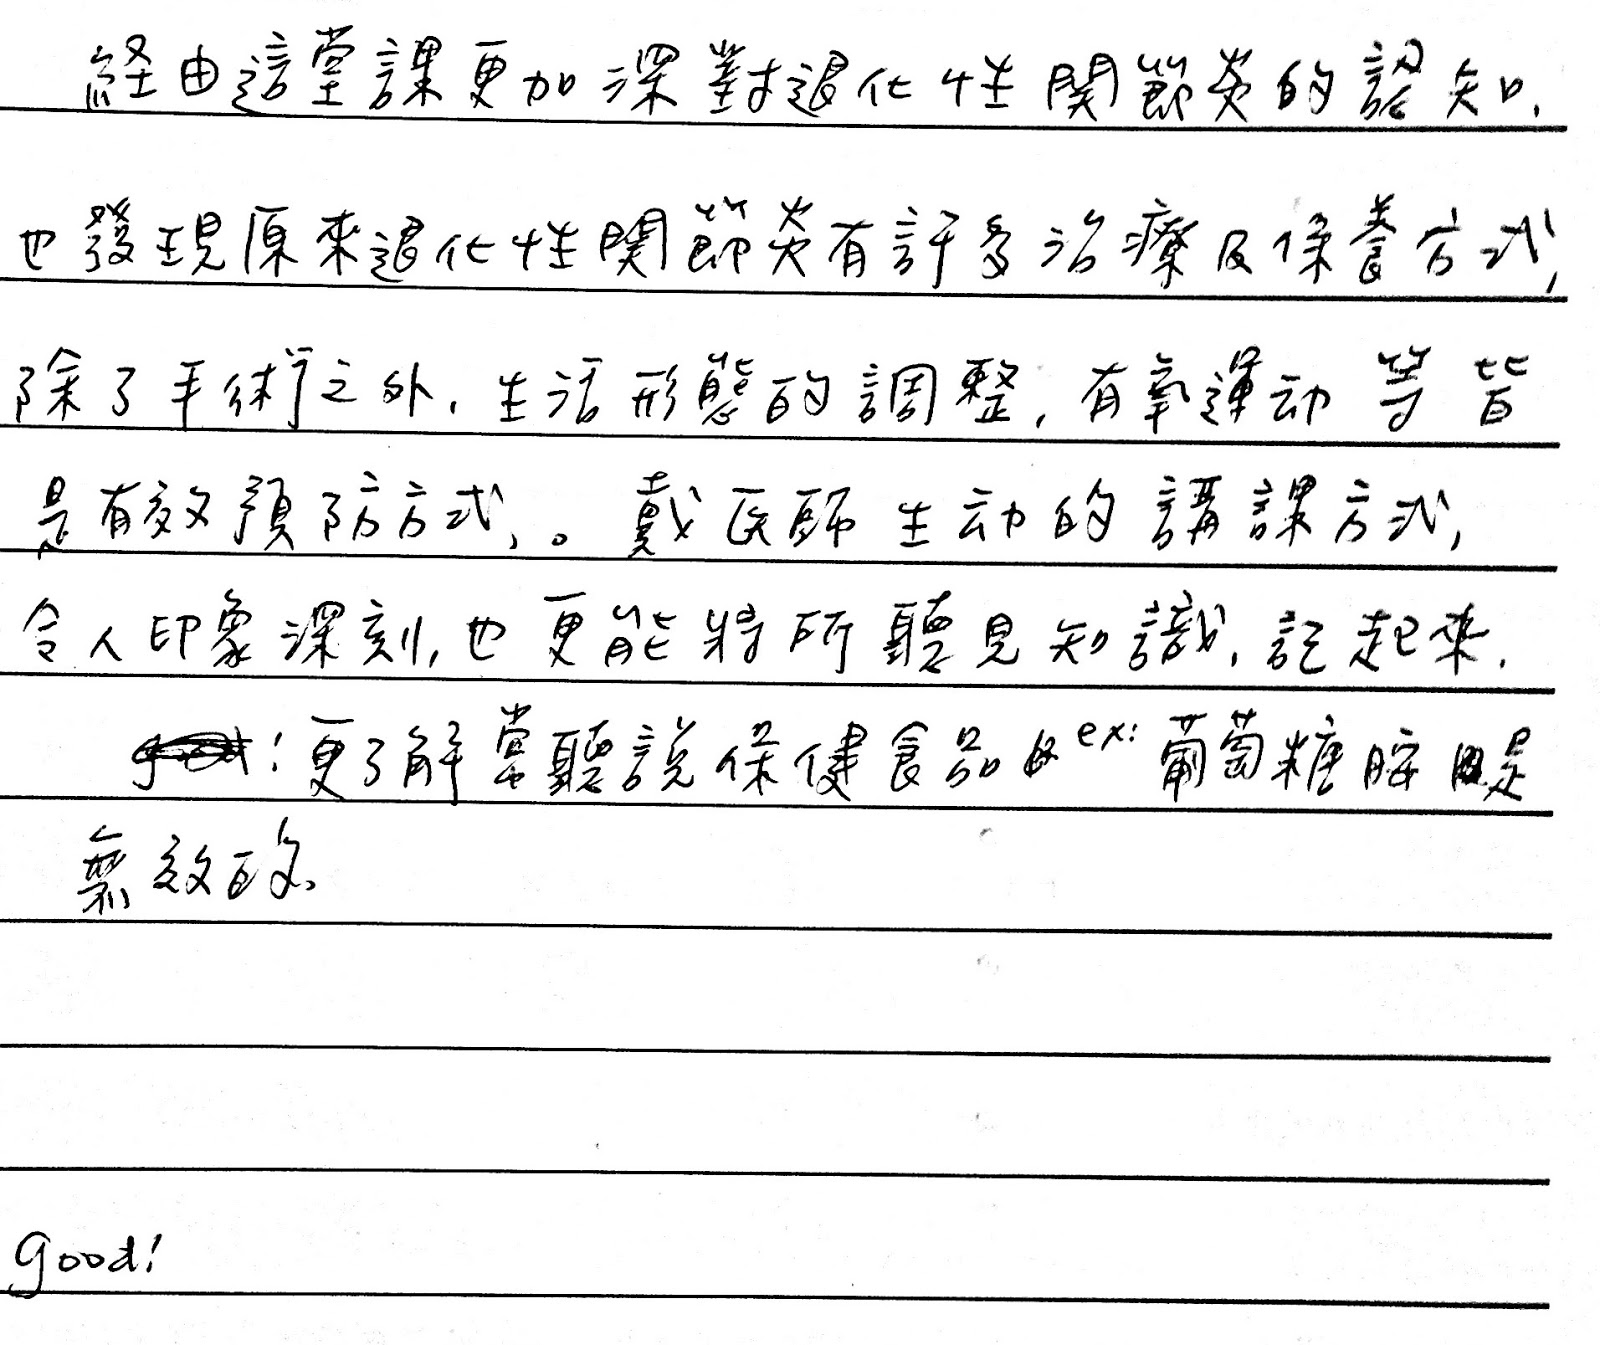 経由這堂課更加深對退化性関節炎的認知.
也發現原來退化性関節炎有許多治療及保養方式,
除了手術之外,生活形態的調整,有氧運动等皆
是有效預防方式,。戴医師生动的講課方式,
令人印象深刻,也更能將所聽見知識,記起來.
:更了解常聽說保健食品 ex:葡萄糖胺是
無效的、
good!